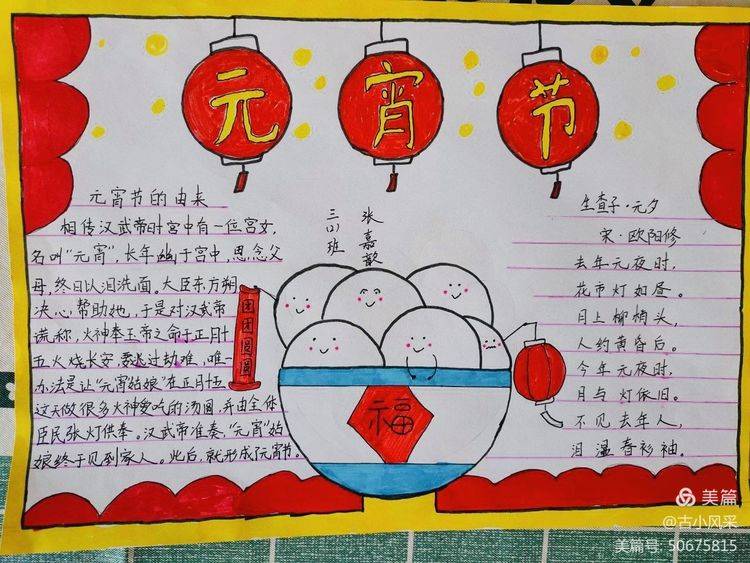 元宵节
元宵节的由来
相传汉武帝时宫中有一位宫女,
名叫“元宵”,长年幽于宫中,思念父
母,终日以泪洗面,大臣东方朔
决心,帮助她,于是对汉武帝
谎称,火神奉玉帝之命于正月十
五火烧长安,要逃过劫难,唯一
办法是让“元宵姑娘”在正月十五
这天做很多火神爱吃的汤圆,并由全体
臣民张灯供奉。汉武帝准奏,“元宵”姑
娘终于见到家人。此后,就形成了元宵节。
三(1)班
张嘉歆
团团圆圆
福
生查子·元夕
宋·欧阳修
去年元夜时,
花市灯如昼。
月上柳梢头,
人约黄昏后。
今年元夜时,
月与灯依旧。
不见去年人,
泪湿春衫袖。
美篇
@古小风采
美篇号: 50675815